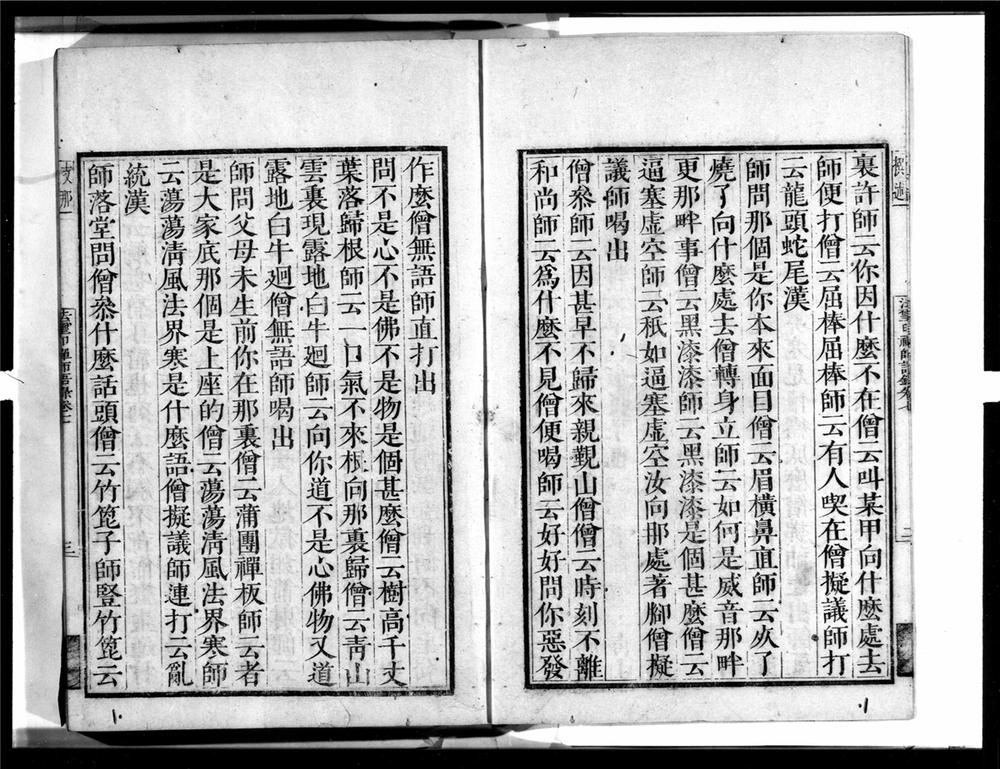 裏許師云你因什麼不在僧云叫某甲向什麼處去
師便打僧云屈棒屈棒師云有人喫在僧擬議師打
云龍頭蛇尾漢
師問那個是你本來面目僧云眉橫鼻直師云火了
燒了向什麼處去僧轉身立師云如何是威音那畔
更那畔事僧云黑漆漆師云黑漆漆是個甚麼僧云
逼塞虛空師云秖如逼塞虛空汝向那處著腳僧擬
議師喝出
僧叅師云因甚早不歸來親覲山僧僧云時刻不離
和尚師云為什麼不見僧便喝師云好好問你惡發
作麼僧無語師直打出
問不是心不是佛不是物是個甚麼僧云樹高千丈
葉落歸根師云一口氣不來根向那裏歸僧云青山
雲裏現露地白牛廻師云向你道不是心佛物又道
露地白牛廻僧無語師喝出
師問父母未生前你在那裏僧云蒲團禪板師云者
是大家底那個是上座的僧云蕩蕩清風法界寒師
云蕩蕩清風法界寒是什麼語僧擬議師連打云亂
統漢
師落堂問僧叅什麼話頭僧云竹篦子師豎竹篦云